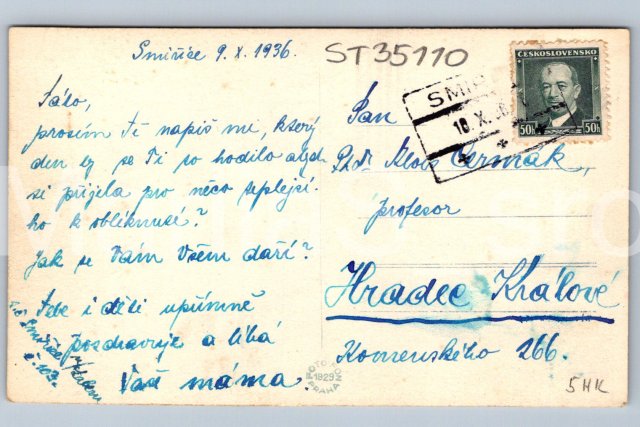 Smiřice 9. X. 1936.
ST35110
ČESKOSLOVENSKO
50h 50h
SMI
10. X. 36
Sálo,
prosím Tě napiš mi, který
den by se Ti to hodilo abych
si přijela pro něco teplejší-
ho k obléknusí?
Jak se Vám Všem daří?
Tebe i děti upřímně
pozdravuje a líbá
Vaše máma.
Pan
PhDr. Alois Čermák,
profesor
Hradec Králové
Komenského 266.
FOTO
1929
PRAHA
5 HK